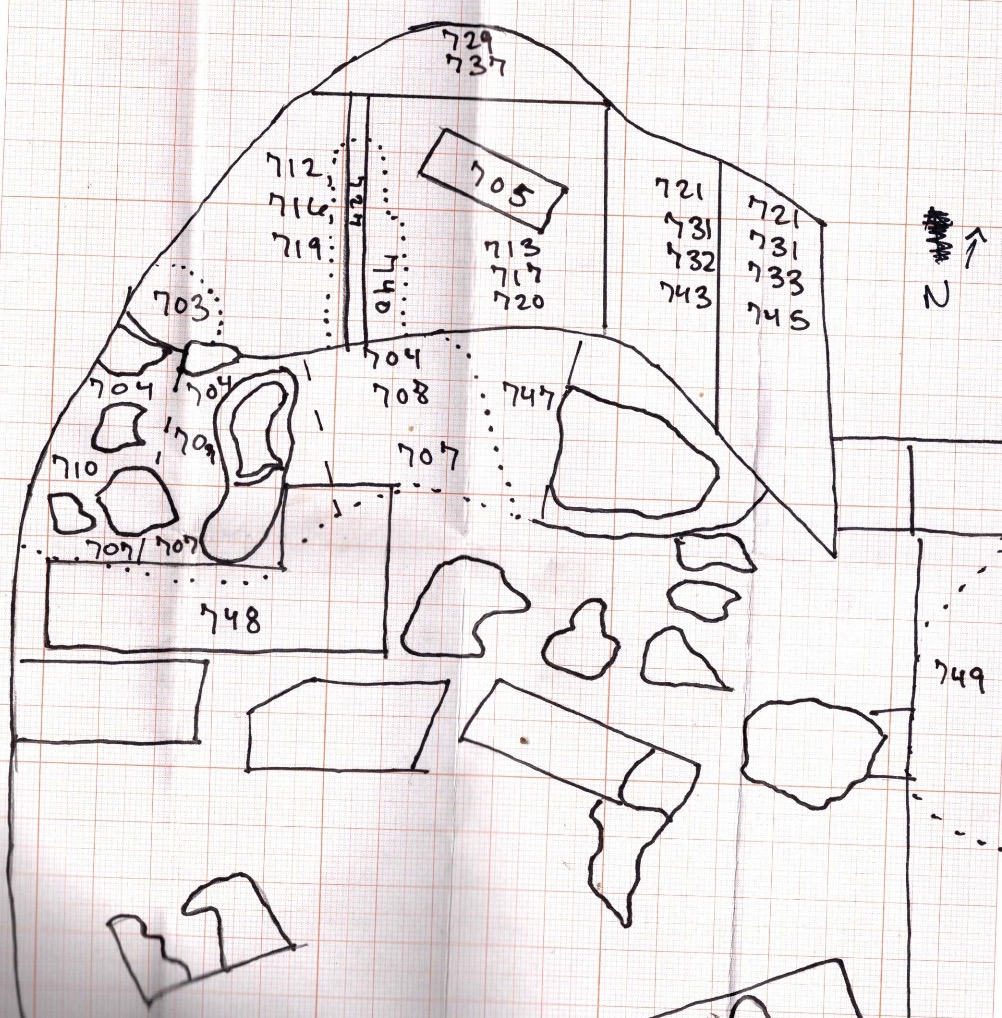 729
737
712,
716,
719
724
740
705
713
717
720
721
731
732
743
721
731
733
745
N
703
704
704
704
708
709
710
707
747
707/
707
748
749